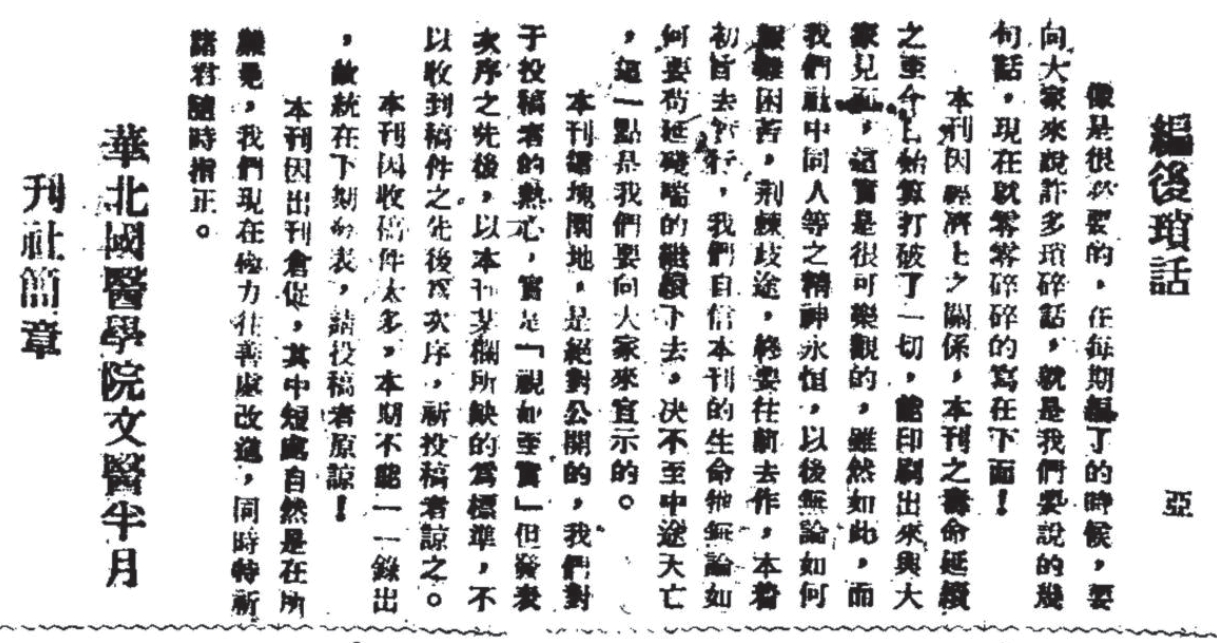 編後瑣話
亞
像是很必要的，在每期編了的時候，要
向大家來說許多瑣碎話，就是我們要說的幾
句話，現在就零零碎碎的寫在下面！
本刊因經濟上之關係，本刊之壽命延續
之至今日始算打破了一切，能印刷出來與大
家見面，這實是很可樂觀的，雖然如此，而
我們社中同人等之精神永恒，以後無論如何
艱難困苦，荆棘歧途，終要往前去作，本着
初旨去實行，我們自信本刊的生命他無論如
何要苟延殘喘的繼續下去，决不至中途夭亡
，這一點是我們要向大家來宣示的。
本刊這塊園地，是絕對公開的，我們對
于投稿者的熱心，實是「視如至寶」但發表
次序之先後，以本刊某欄所缺的爲標準，不
以收到稿件之先後爲次序，祈投稿者諒之。
本刊因收稿件太多，本期不能一一錄出
，故統在下期發表，請投稿者原諒！
本刊因出刊倉促，其中短處自然是在所
難免，我們現在極力往善處改進，同時特祈
諸君隨時指正。
華北國醫學院文醫半月
刊社簡章